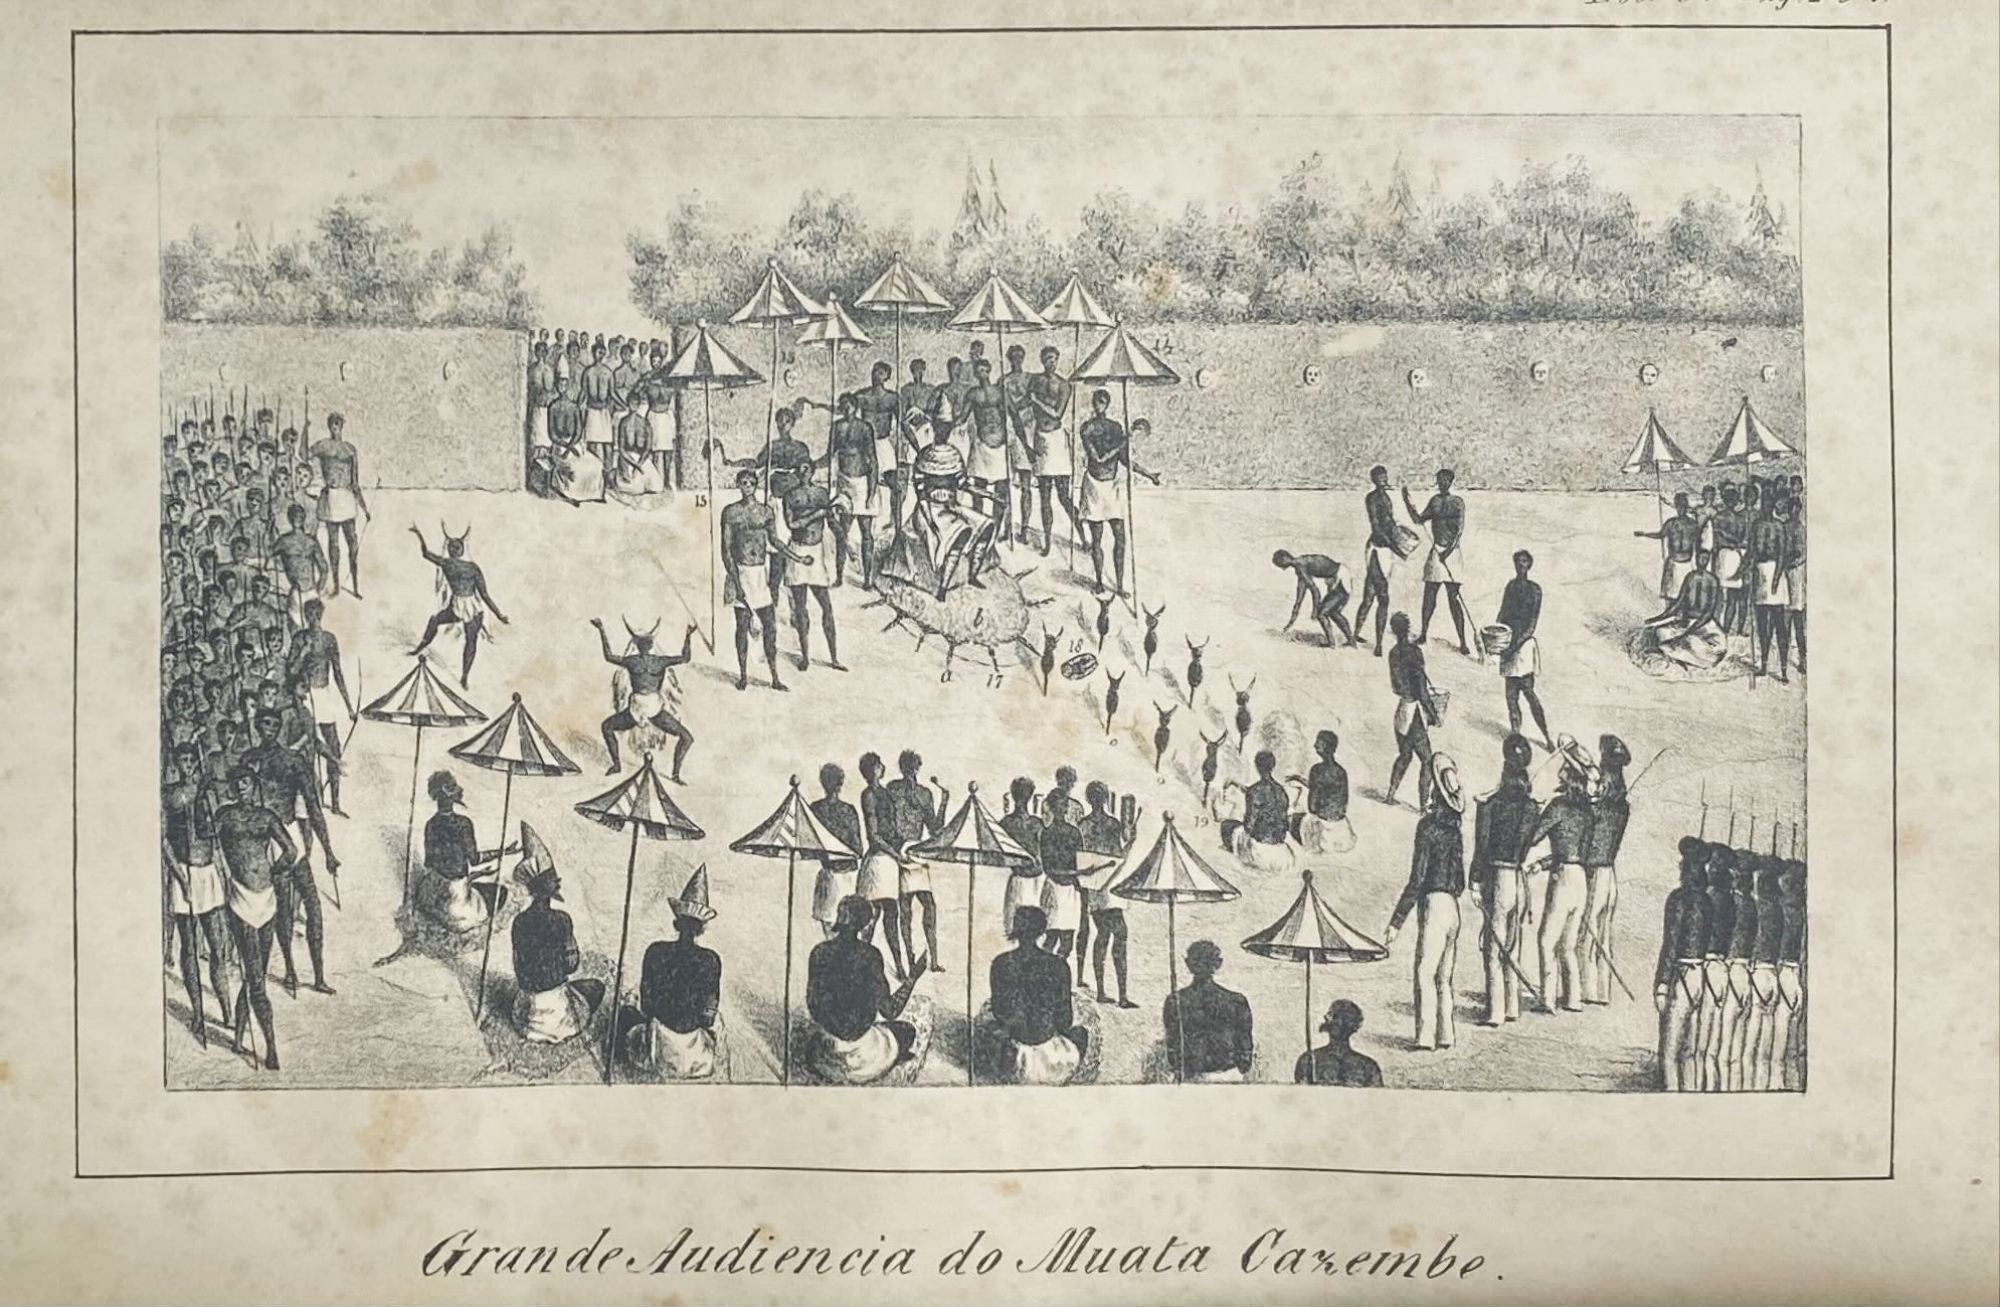 13
14
15
b
18
a 17
19
Grande Audiencia do Muata Cazembe.